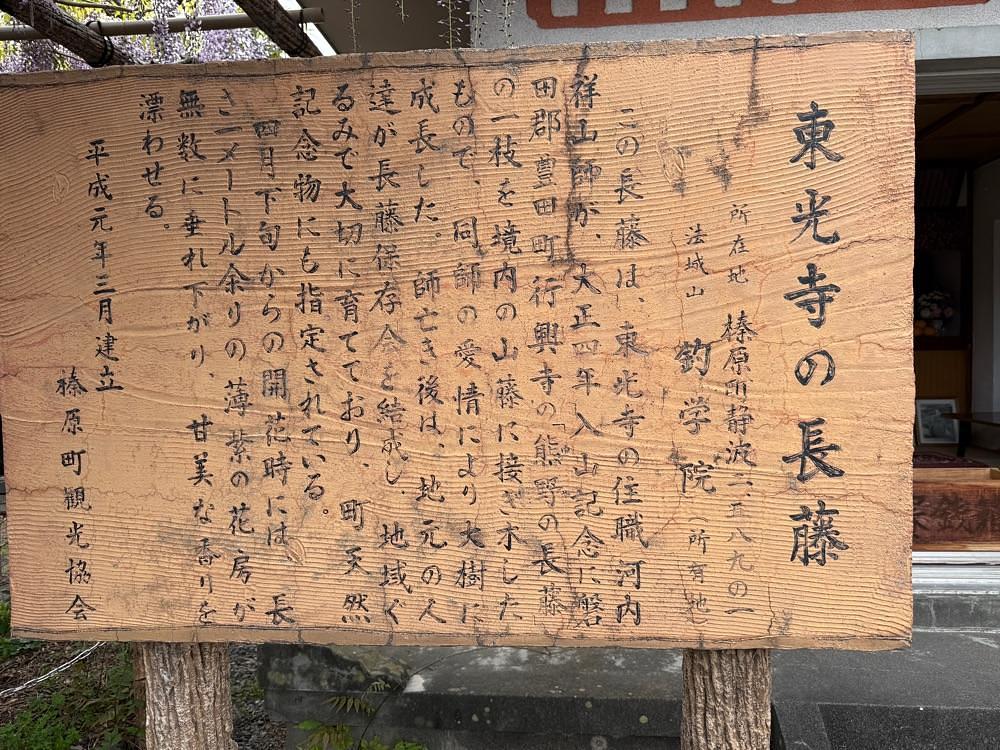 東光寺の長藤
所在地 榛原町静波一、五八九の一
法城山 釣学院（所有地）
この長藤は、東光寺の住職 河内
祥山師が、大正四年入山記念に磐
田郡豊田町行興寺の「熊野の長藤
の一枝を境内の山藤に接ぎ木した
もので、同師の愛情により大樹に
成長した。師亡き後は、地元の人
達が長藤保存会を結成し、地域ぐ
るみで大切に育てており、町天然
記念物にも指定されている。
四月下旬からの開花時には、長
さ一メートル余りの薄紫の花房が
無数に垂れ下がり、甘美な香りを
漂わせる。
平成元年三月建立
榛原町観光協会